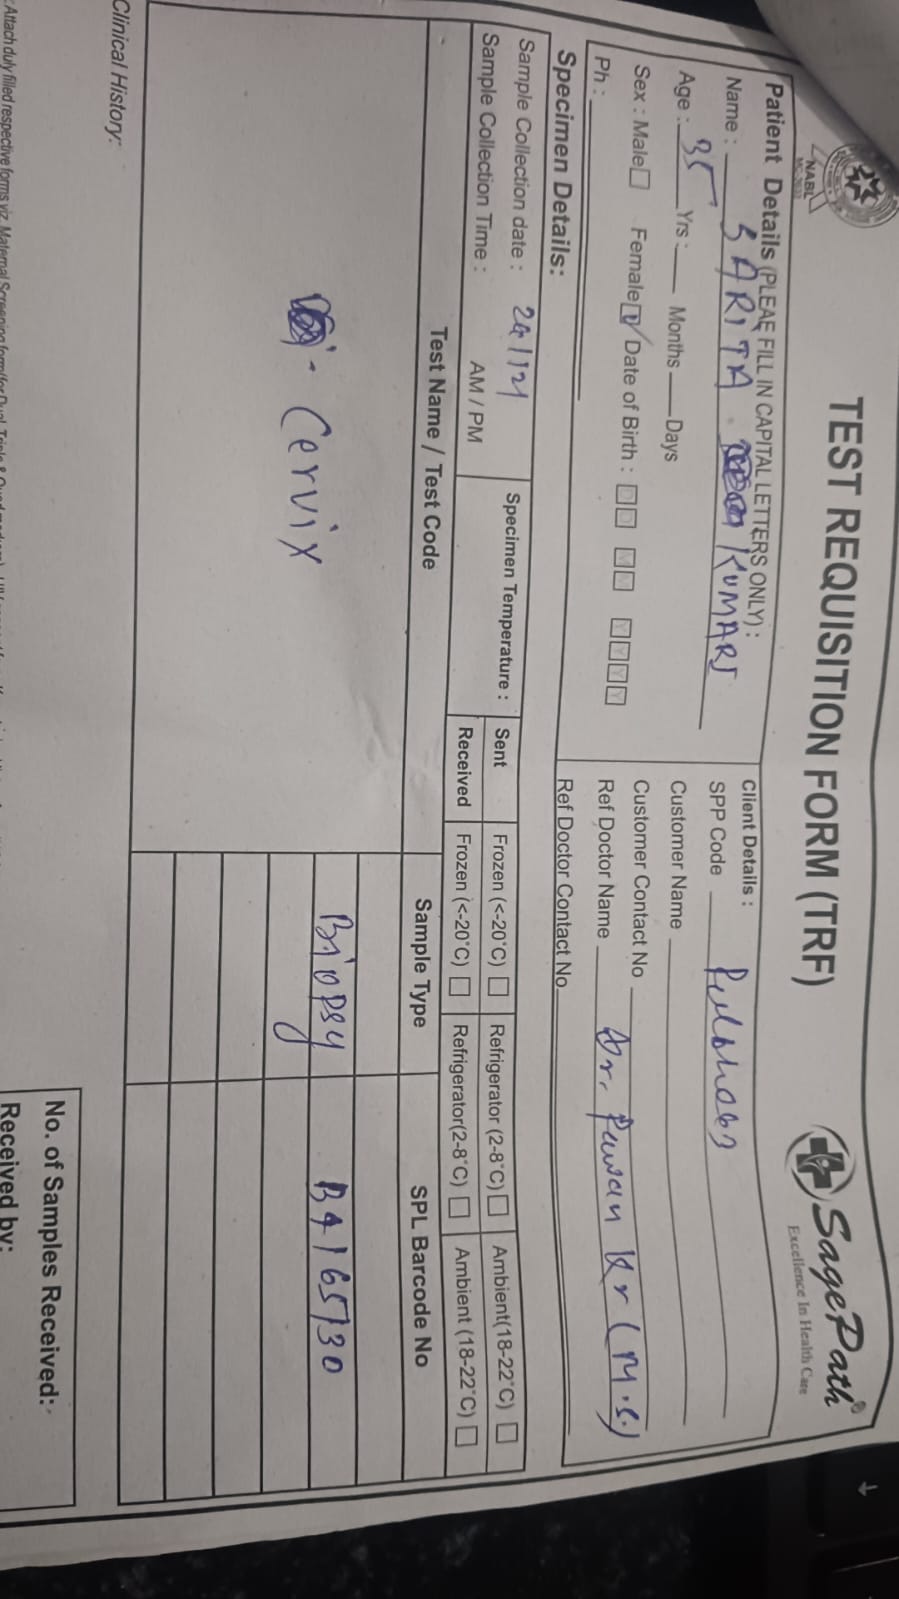 NABL
TEST REQUISITION FORM (TRF)
SagePath®
Excellence In Health Care
Patient Details (PLEAE FILL IN CAPITAL LETTERS ONLY) :
Name : SARITA KUMARI
Age : 35 Yrs : Months Days
Sex : Male Female Date of Birth : D D M M Y Y Y Y
Ph :
Client Details :
SPP Code
Customer Name
Customer Contact No
Ref Doctor Name Dr. Pawan Kr (M.S.)
Ref Doctor Contact No
Specimen Details:
Sample Collection date :
Sample Collection Time : AM / PM
Specimen Temperature :
Sent Frozen (<-20°C) Refrigerator (2-8°C) Ambient(18-22°C)
Received Frozen (<-20°C) Refrigerator(2-8°C) Ambient (18-22°C)
Test Name / Test Code Sample Type SPL Barcode No
Cervix Biopsy B4165130
Clinical History:
No. of Samples Received:
Received by:
Attach duly filled respective forms viz. Maternal Screening form